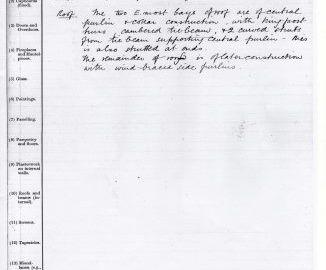 (1) Cupboards
(fixed).
(2) Doors and
Overdoors.
(3) Fireplaces
and Mantel-
pieces.
(4) Glass.
(5) Paintings.
(6) Panelling.
(7) Tapestry
and floors.
(8) Plasterwork
on internal
walls.
(9) Roofs and
beams (in-
ternal).
(10) Screens.
(11) Tapestries.
(12) Miscel-
laneous (e.g.,
Roof. The two E. most bays of roof are of central
purlin & collar construction, with king post
truss, cambered tie beam, & 2 curved struts
from tie beam supporting central purlin - this
is also strutted at ends.
The remainder of roof is of later construction
with wind-braced side purlins.